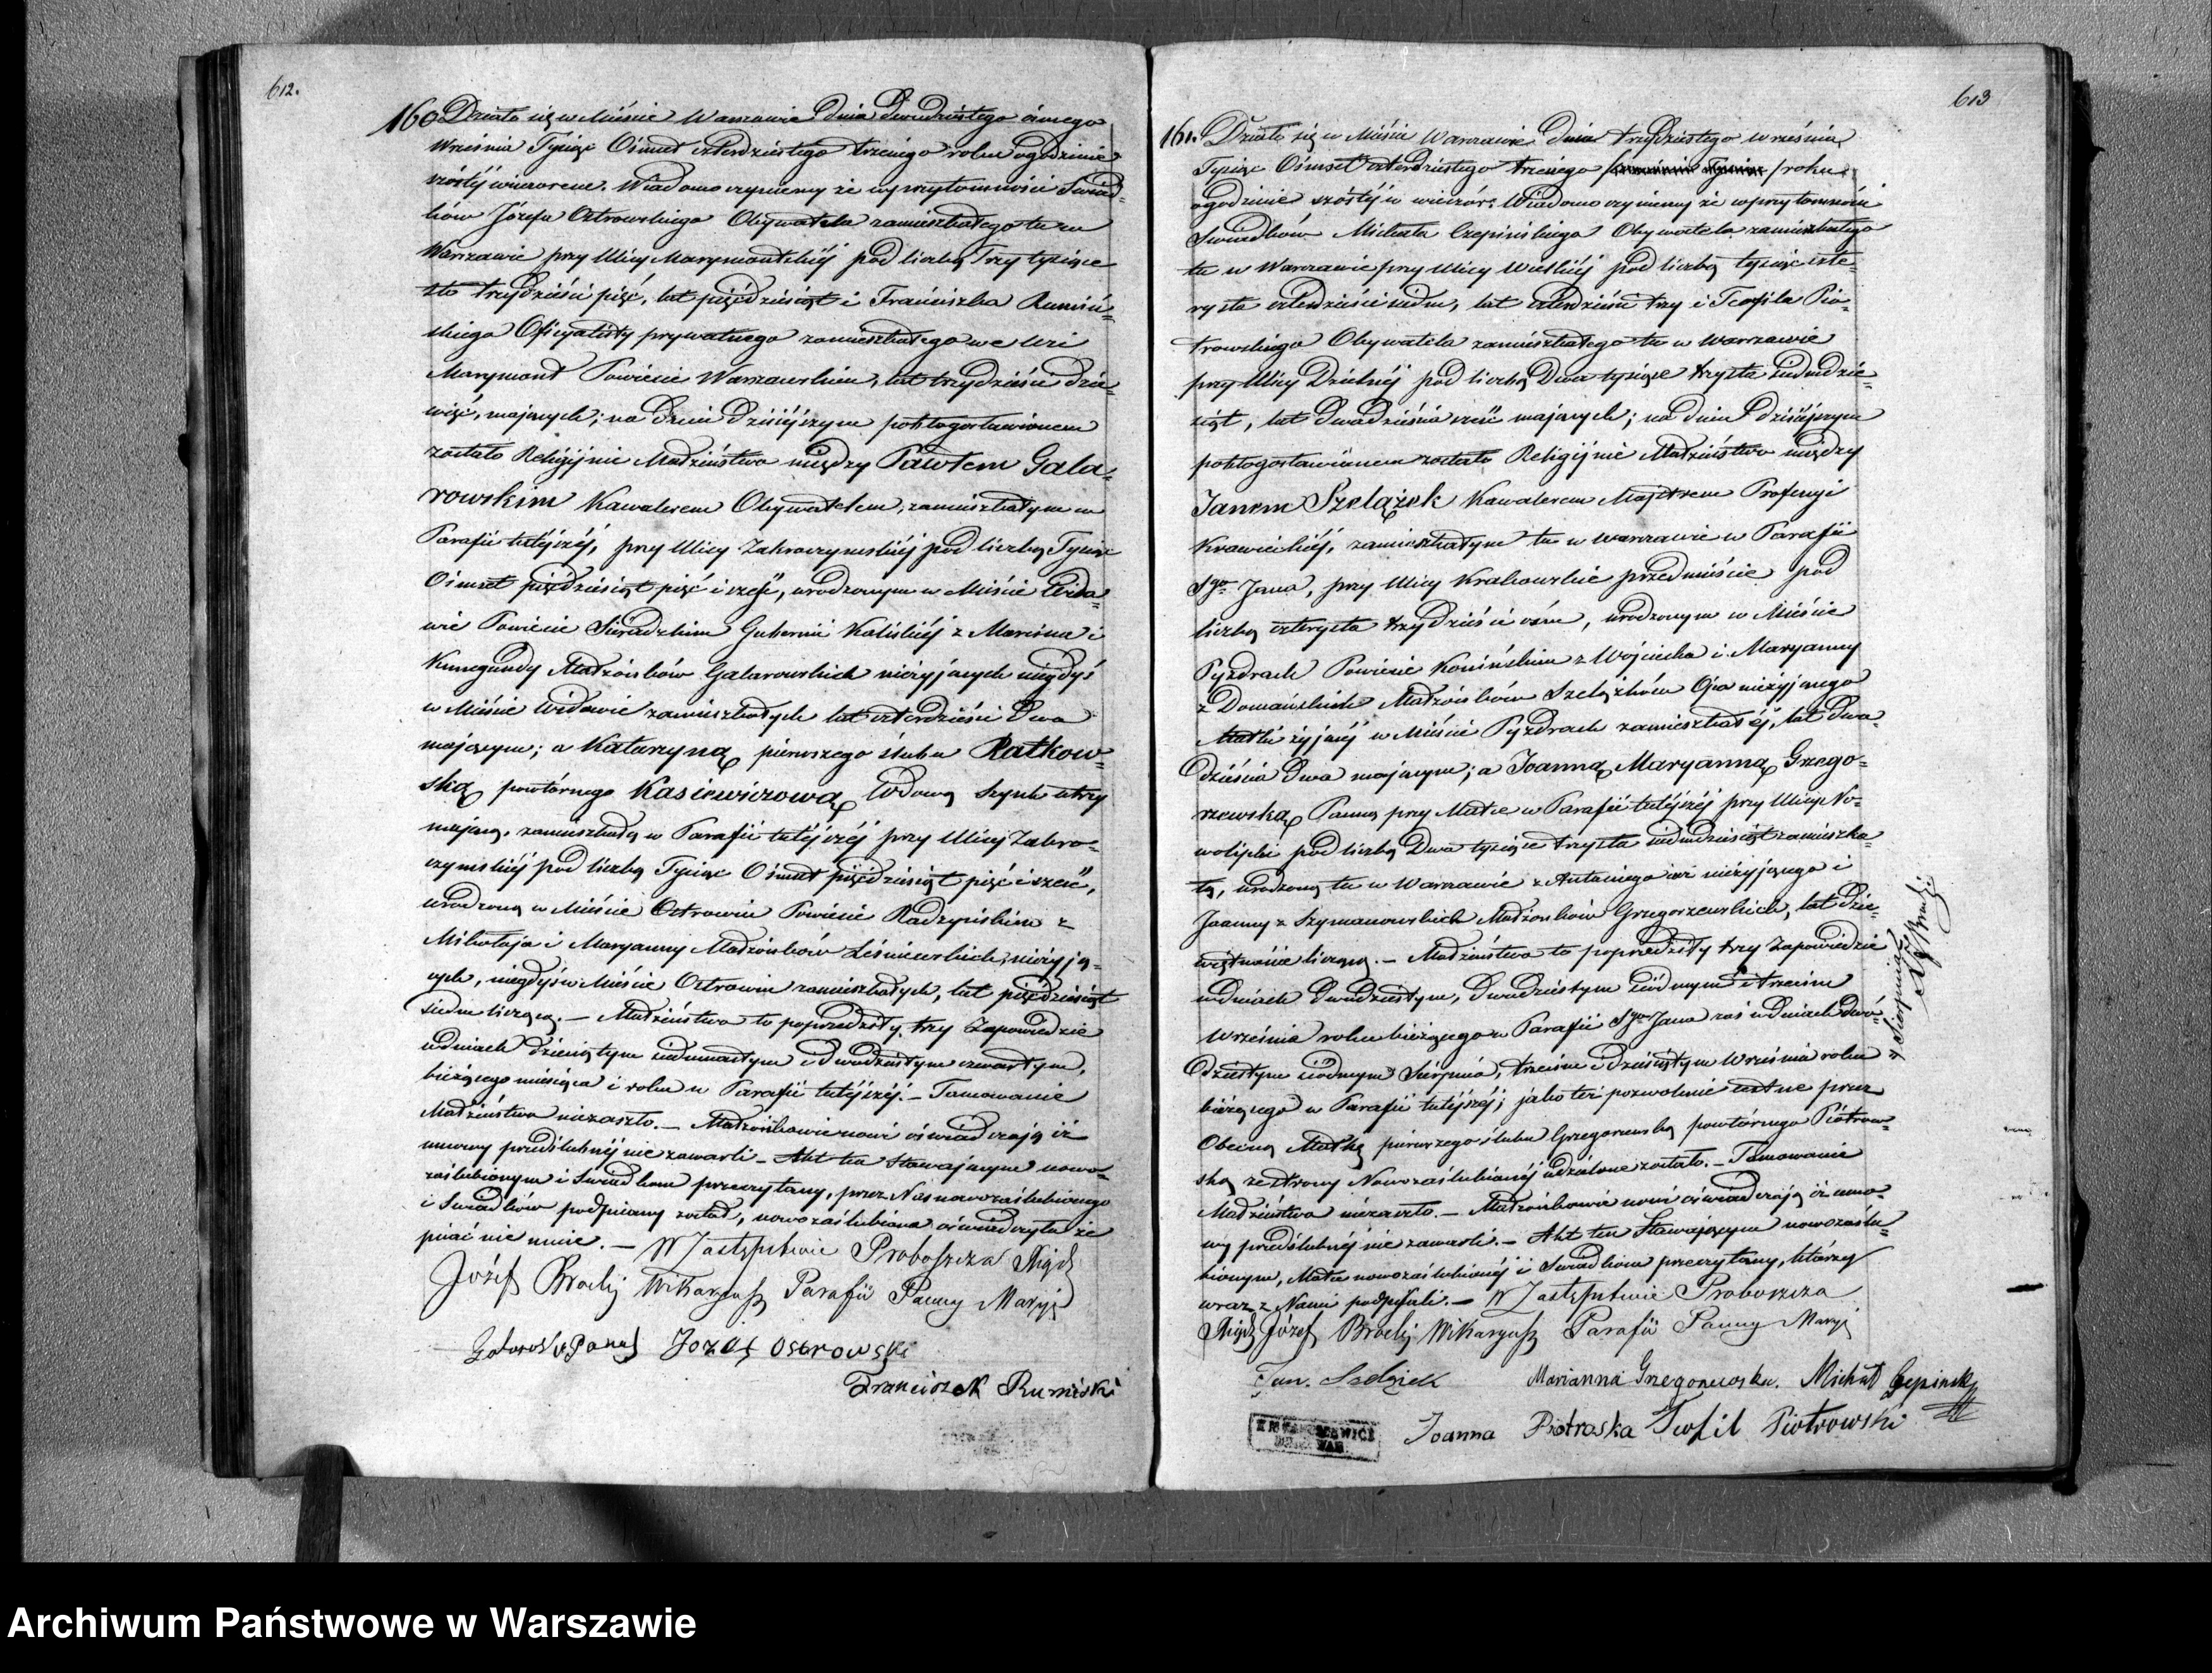 612.
160 Działo się w Mieście Warszawie dnia Dwudziestego ósmego
Września Tysiąc Ośmset czterdziestego trzeciego roku o godzinie
szóstéj wieczorem. Wiadomo czyniemy że w przytomności Świad=
ków Józefa Ostrowskiego Obywatela zamieszkałego tu w
Warszawie przy Ulicy Marymontskiéj pod liczbą Trzy tysiące
sto trzydzieści pięć, lat pięćdziesiąt i Franciszka Rumiń=
skiego Oficyalisty prywatnego zamieszkałego we wsi
Marymont Powiecie Warszawskim, lat trzydzieści dzie=
więć, mających; na dniu dzisiéjszym pobłogosławionem
zostało Religijnie Małżeństwo między Pawłem Gala=
rowskim Kawalerem Obywatelem, zamieszkałym w
Parafii tutéjszéj, przy Ulicy Zakroczymskiéj pod liczbą Tysiąc
Ośmset pięćdziesiąt pięć i sześć, urodzonym w Mieście Wida=
wie Powiecie Sieradzkim Gubernii Kaliskiéj z Marcina i
Kunegundy Małżonków Galarowskich nieżyjących niegdyś
w Mieście Widawie zamieszkałych lat czterdzieści dwa
mającym; a Katarzyną pierwszego ślubu Ratkow=
ską powtórnego Kasiewiczową Wdową Szynk utrzy
mającą, zamieszkałą w Parafii tutéjszéj przy Ulicy Zakro=
czymskiéj pod liczbą Tysiąc Ośmset pięćdziesiąt pięć i sześć,
urodzoną w Mieście Ostrowiu Powiecie Radzyńskim z
Mikołaja i Maryanny Małżonków Leśniewskich, nieżyją=
cych, niegdyś w Mieście Ostrowiu zamieszkałych, lat pięćdziesiąt
siedm liczącą. — Małżeństwo to poprzedziły trzy Zapowiedzie
w dniach dziesiątym siedmnastym i dwudziestym czwartym,
bieżącego miesiąca i roku w Parafii tutéjszéj. — Tamowanie
Małżeństwa niezaszło. — Małżonkowie nowi oświadczają iż
umowy przedślubnéj nie zawarli. — Akt ten Stawającym nowo=
zaślubionym i Świadkom przeczytany, przez Nas nowozaślubionego
i Świadków podpisany został, nowozaślubiona oświadczyła że
pisać nie umie. — W Zastępstwie Proboszcza Migdź
Józef Brocki Wikaryusz Parafii Panny Maryi
Galarosk Paweł Jozef Ostrowski
Franciszek Rumiński
613
161. Działo się w Mieście Warszawie dnia trzydziestego września
Tysiąc Ośmset czterdziestego trzeciego roku
o godzinie szóstéj w wieczór. Wiadomo czyniemy że w przytomności
Świadków Michała Czepińskiego Obywatela zamieszkałego
tu w Warszawie przy Ulicy Wiejskiéj pod liczbą tysiąc czte=
rysta czterdzieści siedm, lat czterdzieści trzy i Teofila Pio=
trowskiego Obywatela zamieszkałego tu w Warszawie
przy Ulicy Dzielnéj pod liczbą Dwa tysiące trzysta siedmdzie=
siąt, lat dwadzieścia sześć mających; na dniu dzisiéjszym
pobłogosławionem zostało Religijnie Małżeństwo między
Janem Szelążek Kawalerem Majstrem Profesyi
Krawieckiéj, zamieszkałym tu w Warszawie w Parafii
Sgo Jana, przy Ulicy Krakowskie przedmieście pod
liczbą czterysta trzydzieści ósm, urodzonym w Mieście
Pyzdrach Powiecie Konińskim z Wojciecha i Maryanny
z Domańskich Małżonków Szelążków Ojca nieżyjącego
Matki żyjącéj w Mieście Pyzdrach zamieszkałéj, lat dwa=
dzieścia dwa mającym; a Joanną Maryanną Grzego=
rzewską Panną przy Matce w Parafii tutéjszéj przy Ulicy No=
wolipki pod liczbą Dwa tysiące trzysta siedmdziesiąt zamieszka=
łą, urodzoną tu w Warszawie z Antoniego już nieżyjącego i
Joanny z Szymanowskich Małżonków Grzegorzewskich, lat dzie=
więtnaście liczącą. — Małżeństwo to poprzedziły trzy Zapowiedzie
w dniach dwudziestym, dwudziestym siódmym i trzecim
Września roku bieżącego w Parafii Sgo Jana zaś w dniach dwu=
dziestym siódmym Sierpnia, trzecim i dziesiątym Września roku
bieżącego w Parafii tutéjszéj; jako też pozwolenie ustne przez
Obecną Matkę pierwszego ślubu Grzegorzewską powtórnego Piotrow=
ską ze strony Nowozaślubionéj udzielone zostało. — Tamowanie
Małżeństwa niezaszło. — Małżonkowie nowi oświadczają iż umo=
wy przedślubnéj nie zawarli. — Akt ten Stawającym nowozaślu=
bionym, Matce nowozaślubionéj i Świadkom przeczytany, którzy
wraz z Nami podpisali. — W Zastępstwie Proboszcza
Migdź Józef Brocki Wikaryusz Parafii Panny Maryi
Jan. Szelążek Marianna Grzegorzewska. Michał Czepiński
Joanna Piotroska Teofil Piotrowski
Sierpnia
Archiwum Państwowe w Warszawie